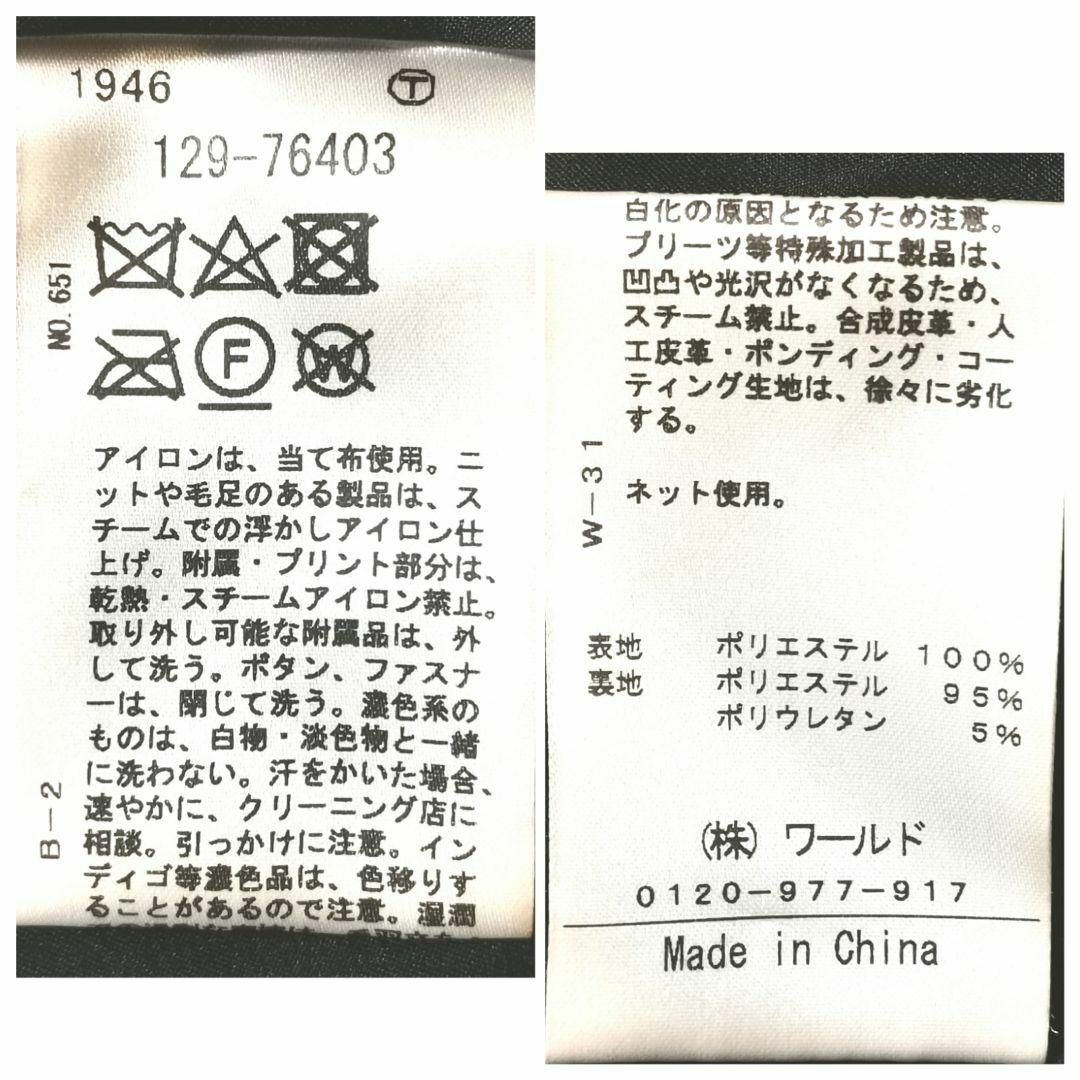 1946
T
129-76403
NO. 651
F
W
アイロンは、当て布使用。ニ
ットや毛足のある製品は、ス
チームでの浮かしアイロン仕
上げ。附属・プリント部分は、
乾熱・スチームアイロン禁止。
取り外し可能な附属品は、外
して洗う。ボタン、ファスナ
ーは、閉じて洗う。濃色系の
ものは、白物・淡色物と一緒
に洗わない。汗をかいた場合、
速やかに、クリーニング店に
相談。引っかけに注意。イン
ディゴ等濃色品は、色移りす
ることがあるので注意。湿潤
B-2
白化の原因となるため注意。
プリーツ等特殊加工製品は、
凹凸や光沢がなくなるため、
スチーム禁止。合成皮革・人
工皮革・ボンディング・コー
ティング生地は、徐々に劣化
する。
W-31
ネット使用。
表地 ポリエステル 100%
裏地 ポリエステル 95%
ポリウレタン 5%
(株) ワールド
0120-977-917
Made in China